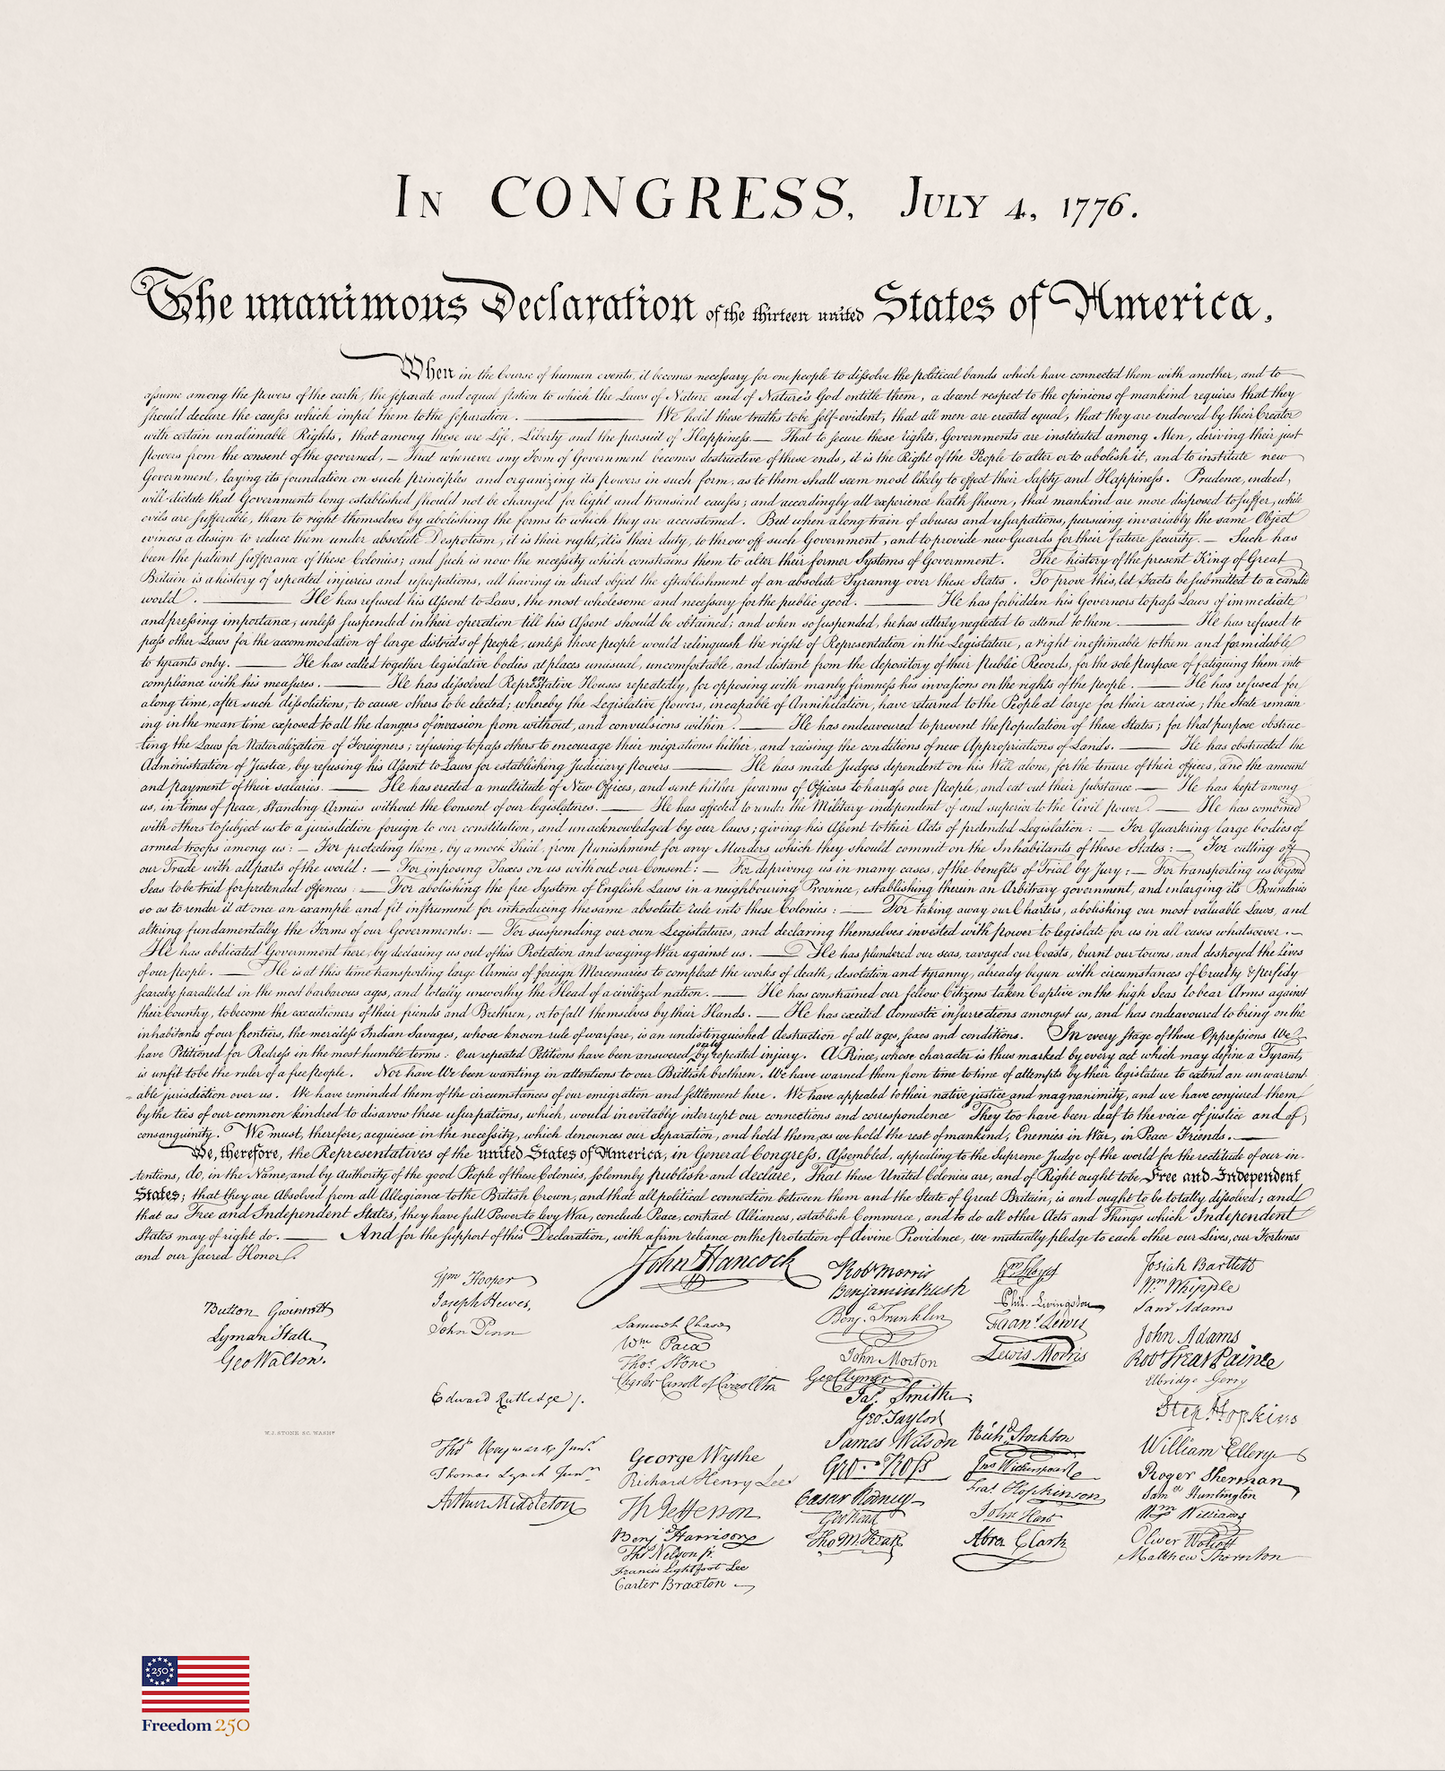 In CONGRESS, July 4, 1776.
The unanimous Declaration of the thirteen united States of America,
When in the Course of human events, it becomes necessary for one people to dissolve the political bands which have connected them with another, and to
assume among the powers of the earth, the separate and equal station to which the Laws of Nature and of Nature's God entitle them, a decent respect to the opinions of mankind requires that they
should declare the causes which impel them to the separation. — We hold these truths to be self-evident, that all men are created equal, that they are endowed by their Creator
with certain unalienable Rights, that among these are Life, Liberty and the pursuit of Happiness.— That to secure these rights, Governments are instituted among Men, deriving their just
powers from the consent of the governed, — That whenever any Form of Government becomes destructive of these ends, it is the Right of the People to alter or to abolish it, and to institute new
Government, laying its foundation on such principles and organizing its powers in such form, as to them shall seem most likely to effect their Safety and Happiness. Prudence, indeed,
will dictate that Governments long established should not be changed for light and transient causes; and accordingly all experience hath shewn, that mankind are more disposed to suffer, while
evils are sufferable, than to right themselves by abolishing the forms to which they are accustomed. But when a long train of abuses and usurpations, pursuing invariably the same Object
evinces a design to reduce them under absolute Despotism, it is their right, it is their duty, to throw off such Government, and to provide new Guards for their future security.— Such has
been the patient sufferance of these Colonies; and such is now the necessity which constrains them to alter their former Systems of Government. The history of the present King of Great
Britain is a history of repeated injuries and usurpations, all having in direct object the establishment of an absolute Tyranny over these States. To prove this, let Facts be submitted to a candid
world. — He has refused his Assent to Laws, the most wholesome and necessary for the public good. — He has forbidden his Governors to pass Laws of immediate
and pressing importance, unless suspended in their operation till his Assent should be obtained; and when so suspended, he has utterly neglected to attend to them. — He has refused to
pass other Laws for the accommodation of large districts of people, unless those people would relinquish the right of Representation in the Legislature, a right inestimable to them and formidable
to tyrants only. — He has called together legislative bodies at places unusual, uncomfortable, and distant from the depository of their Public Records, for the sole purpose of fatiguing them into
compliance with his measures. — He has dissolved Representative Houses repeatedly, for opposing with manly firmness his invasions on the rights of the people. — He has refused for
a long time, after such dissolutions, to cause others to be elected; whereby the Legislative powers, incapable of Annihilation, have returned to the People at large for their exercise; the State remain
ing in the mean time exposed to all the dangers of invasion from without, and convulsions within. — He has endeavoured to prevent the population of these States; for that purpose obstruc-
ting the Laws for Naturalization of Foreigners; refusing to pass others to encourage their migrations hither, and raising the conditions of new Appropriations of Lands. — He has obstructed the
Administration of Justice, by refusing his Assent to Laws for establishing Judiciary powers — He has made Judges dependent on his Will alone, for the tenure of their offices, and the amount
and payment of their salaries. — He has erected a multitude of New Offices, and sent hither swarms of Officers to harrass our people, and eat out their substance — He has kept among
us, in times of peace, Standing Armies without the Consent of our legislatures. — He has affected to render the Military independent of and superior to the Civil power. — He has combined
with others to subject us to a jurisdiction foreign to our constitution, and unacknowledged by our laws; giving his Assent to their Acts of pretended Legislation: — For Quartering large bodies of
armed troops among us: — For protecting them, by a mock Trial, from punishment for any Murders which they should commit on the Inhabitants of these States: — For cutting off
our Trade with all parts of the world: — For imposing Taxes on us without our Consent: — For depriving us in many cases, of the benefits of Trial by Jury; — For transporting us beyond
Seas to be tried for pretended offences — For abolishing the free System of English Laws in a neighbouring Province, establishing therein an Arbitrary government, and enlarging its Boundaries
so as to render it at once an example and fit instrument for introducing the same absolute rule into these Colonies: — For taking away our Charters, abolishing our most valuable Laws, and
altering fundamentally the Forms of our Governments: — For suspending our own Legislatures, and declaring themselves invested with power to legislate for us in all cases whatsoever.—
He has abdicated Government here, by declaring us out of his Protection and waging War against us. — He has plundered our seas, ravaged our Coasts, burnt our towns, and destroyed the lives
of our people. — He is at this time transporting large Armies of foreign Mercenaries to compleat the works of death, desolation and tyranny, already begun with circumstances of Cruelty & perfidy
scarcely paralleled in the most barbarous ages, and totally unworthy the Head of a civilized nation. — He has constrained our fellow Citizens taken Captive on the high Seas to bear Arms against
their Country, to become the executioners of their friends and Brethren, or to fall themselves by their Hands. — He has excited domestic insurrections amongst us, and has endeavoured to bring on the
inhabitants of our frontiers, the merciless Indian Savages, whose known rule of warfare, is an undistinguished destruction of all ages, sexes and conditions. In every stage of these Oppressions We
have Petitioned for Redress in the most humble terms: Our repeated Petitions have been answered only by repeated injury. A Prince, whose character is thus marked by every act which may define a Tyrant,
is unfit to be the ruler of a free people. Nor have We been wanting in attentions to our Brittish brethren. We have warned them from time to time of attempts by their legislature to extend an unwarrant
able jurisdiction over us. We have reminded them of the circumstances of our emigration and settlement here. We have appealed to their native justice and magnanimity, and we have conjured them
by the ties of our common kindred to disavow these usurpations, which, would inevitably interrupt our connections and correspondence They too have been deaf to the voice of justice and of
consanguinity. We must, therefore, acquiesce in the necessity, which denounces our Separation, and hold them, as we hold the rest of mankind, Enemies in War, in Peace Friends.—
We, therefore, the Representatives of the united States of America, in General Congress, Assembled, appealing to the Supreme Judge of the world for the rectitude of our in-
tentions, do, in the Name, and by Authority of the good People of these Colonies, solemnly publish and declare, That these United Colonies are, and of Right ought to be Free and Independent
States; that they are Absolved from all Allegiance to the British Crown, and that all political connection between them and the State of Great Britain, is and ought to be totally dissolved; and
that as Free and Independent States, they have full Power to levy War, conclude Peace, contract Alliances, establish Commerce, and to do all other Acts and Things which Independent
States may of right do. — And for the support of this Declaration, with a firm reliance on the protection of divine Providence, we mutually pledge to each other our Lives, our Fortunes
and our sacred Honor.
Button Gwinnett
Lyman Hall
Geo Walton.
W.J. STONE SC. WASHN
Wm Hooper
Joseph Hewes,
John Penn
Edward Rutledge /.
Thos Heyward Junr.
Thomas Lynch Junr.
Arthur Middleton
John Hancock
Samuel Chase
Wm Paca
Thos Stone
Charles Carroll of Carrollton
George Wythe
Richard Henry Lee
Th Jefferson
Benj Harrison
Thos Nelson jr.
Francis Lightfoot Lee
Carter Braxton
Robt Morris
Benjamin Rush
Benja Franklin
John Morton
Geo Clymer
Jas. Smith
Geo. Taylor
James Wilson
Geo. Ross
Caesar Rodney
Geo Read
Tho M:Kean
Wm Floyd
Phil. Livingston
Frans Lewis
Lewis Morris
Richd Stockton
Jno Witherspoon
Fras Hopkinson
John Hart
Abra Clark
Josiah Bartlett
Wm Whipple
Saml Adams
John Adams
Robt Treat Paine
Elbridge Gerry
Step. Hopkins
William Ellery
Roger Sherman
Saml Huntington
Wm Williams
Oliver Wolcott
Matthew Thornton
250
Freedom 250